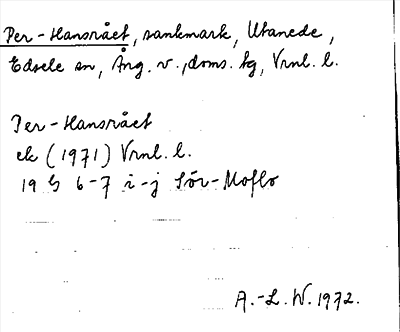 Per-Hansrået, sankmark, Utanede,
Edsele sn, Ång. v., doms. tg, Vrnl. l.
Per-Hansrået
ek (1971) Vrnl. l.
19 G 6-7 i-j Sör-Moflo
A.-L. W. 1972.